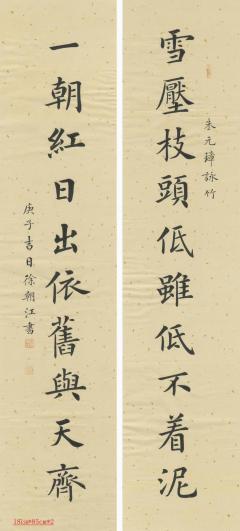 雪壓枝頭低雖低不着泥
朱元璋詠竹
一朝紅日出依舊與天齊
庚子吉日徐朝江書
181cm*65cm*2